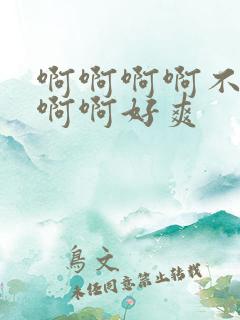 啊啊啊啊不
啊啊好爽
鳥文
未经同意禁止转载